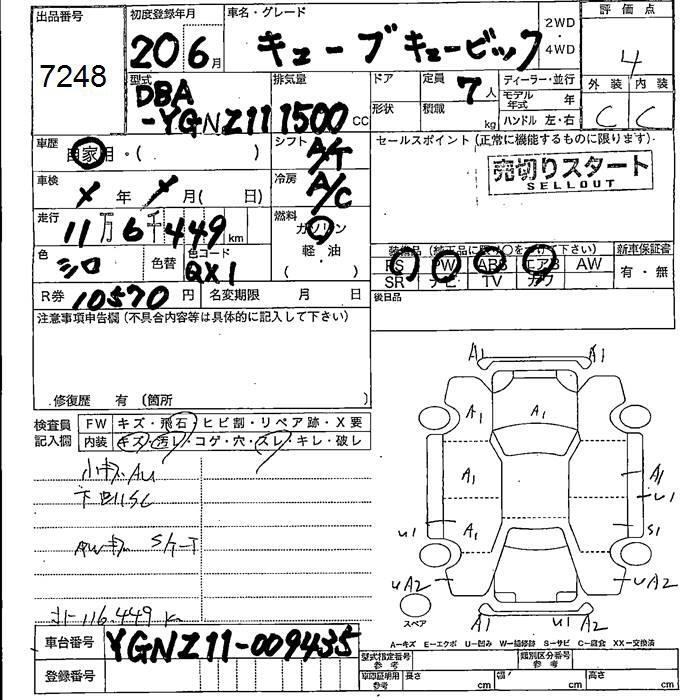 出品番号
7248
初度登録年月
20 6月
車名・グレード
キューブキュービック
2WD
・
4WD
評価点
4
外装 内装
C C
型式
DBA
-YGNZ11
排気量
1500 CC
ドア
形状
定員
7人
積載
kg
ディーラー・並行
モデル年式 年
ハンドル 左・右
車歴
自家用・( )
シフト
A/T
セールスポイント(正常に機能するものに限ります)
売切りスタート
SELLOUT
車検
年 月( 日)
冷房
A/C
走行
11万6千449km
燃料
ガソリン
軽・油
( )
色
シロ
色替
色コード
QX1
装備品(純正品に限り○をつけて下さい)
PS PW ABS エアB AW
SR ナビ TV カワ
新車保証書
有・無
R券 10570円
名変期限 月 日
後日品
注意事項申告欄(不具合内容等は具体的に記入して下さい)
修復歴 有(箇所 )
検査員
記入欄
FW キズ・飛石・ヒビ割・リペア跡・X要
内装 キズ・汚レ・コゲ・穴・スレ・キレ・破レ
小キズAU
下回りSC
AWキズ
116.449K
A1 A1
A1 A1
A1 A1
U1
U1 A1 S1
UA2 UA2
スペア
A1 U1 A2
A-キズ E-エクボ U-凹み W-補修跡 S-サビ C-腐食 XX-交換済
車台番号 YGNZ11-009435
登録番号
型式指定番号
参考
類別区分番号
参考
車庫証明用
参考
長さ cm
幅 cm
高さ cm